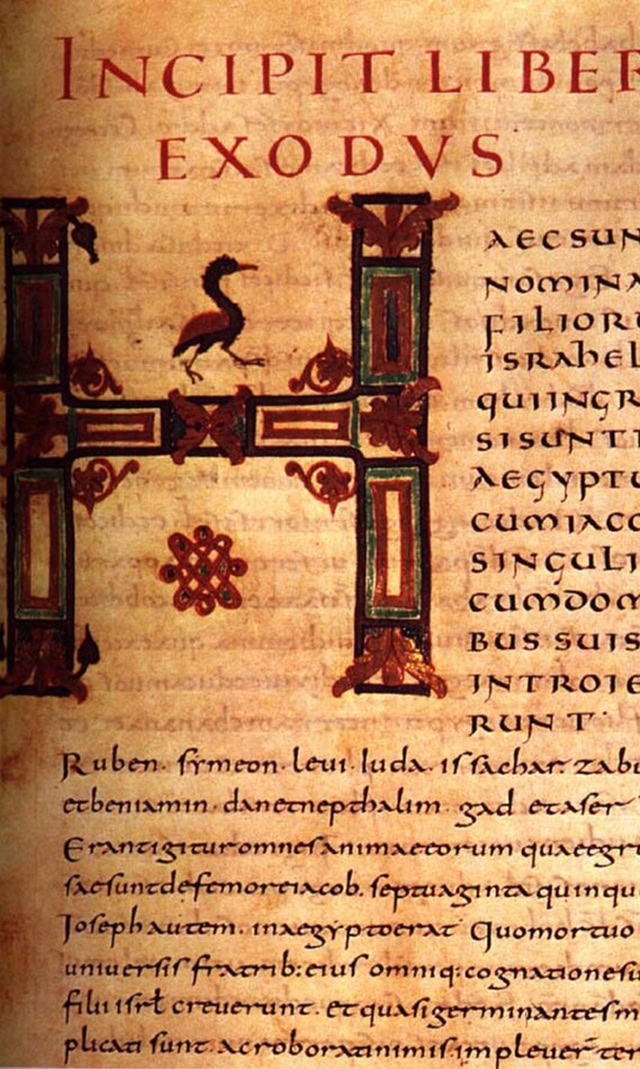 INCIPIT LIBER
EXODVS
HAEC SUN
NOMINA
FILIORU
ISRAHEL
QUIINGR
SISUNTI
AEGYPTU
CUMIACO
SINGULI
CUMDOM
BUS SUIS
INTROIE
RUNT·
Ruben· symeon· leui· Iuda· issachar· zabu
etbeniamin· danetnepthalim· gad etaser
Erantigituromnesanimaeeorum quaeegre
saesuntdefemoreiacob. septuagintaquinqu
Ioseph autem. inaegyptoerat Quomortuo
uniuersis fratrib:eius omniq:cognationesu
filii isrł creuerunt. etquasigerminantesm
plicati sunt. acroboratinimis.impleuer̄ ter